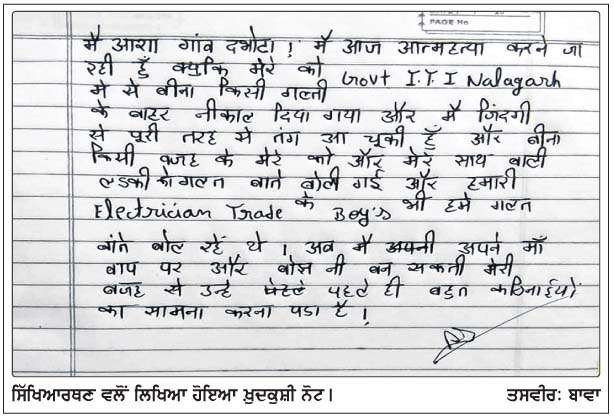 PAGE No
मै आशा गांव दभोटा! मै आज आत्महत्या करने जा
रही हुँ क्युकि मेरे को Govt I.T.I Nalagarh
मे से बीना किसी गलती
के बाहर नीकाल दिया गया और मै जिंदगी
से पूरी तरह से तंग आ चूकी हुँ और बीना
किसी वजह के मेरे को और मेरे साथ वाली
लडकी को गलत बाते बोली गई और हमारी
Electrician Trade के Boy's भी हमे गलत
बांते बोल रहें थे! अब मै अपनी अपने माँ
बाप पर और बोझ नी बन सकती मेरी
वजह से उन्हे पेहले पहले ही बहुत कठिनाईयों
का सामना करना पडा है!
ਸਿੱਖਿਆਰਥਣ ਵਲੋਂ ਲਿਖਿਆ ਹੋਇਆ ਖ਼ੁਦਕੁਸ਼ੀ ਨੋਟ। ਤਸਵੀਰ: ਬਾਵਾ